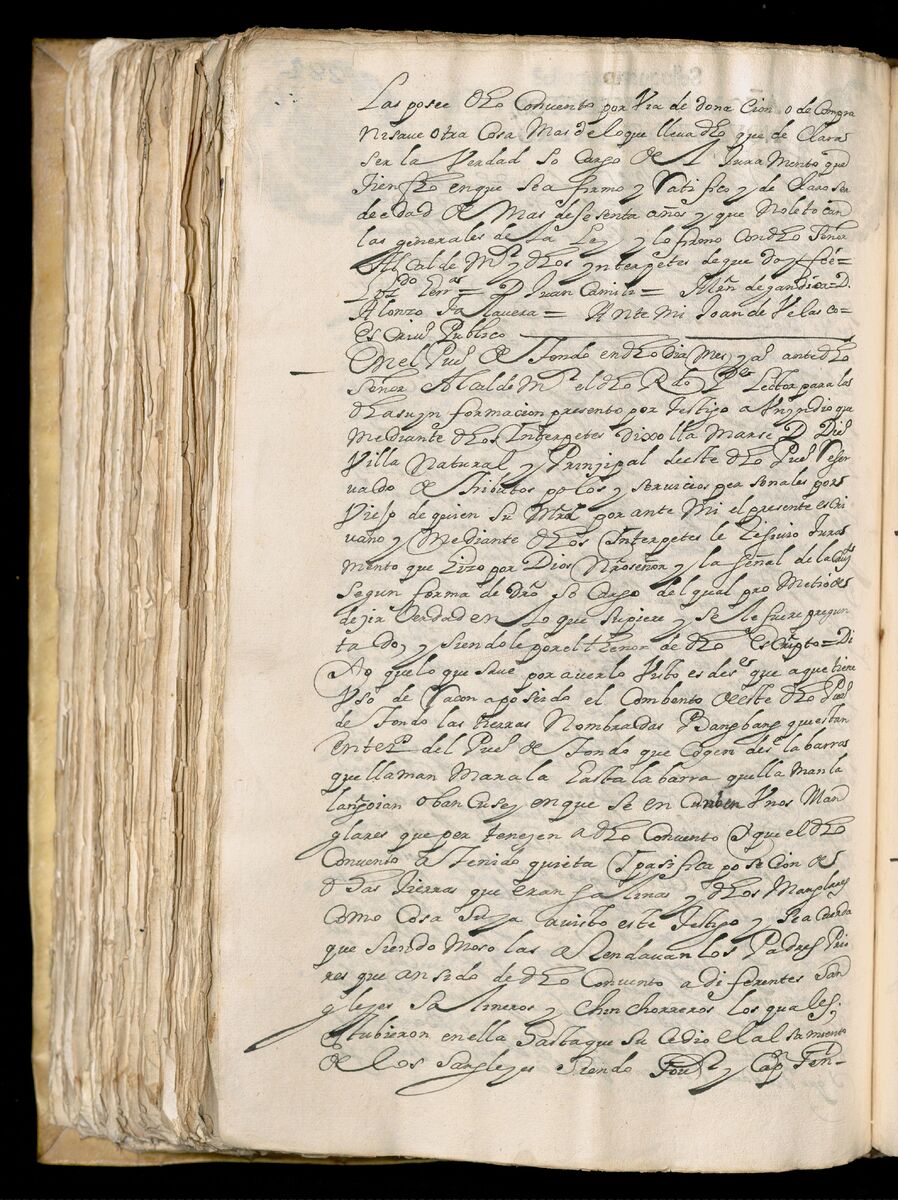 Las posee dho Convento por Via de dona Cion o de Compra
Nisave otra Cosa Mas de lo que lleva dho que de Clara
ser la Verdad so Cargo de l Jura Mento que
tiene fho en que sea firmo y Ratifico y de Claro ser
de edad de Mas de sesenta años y que No le tocan
las generales de La Ley y lo firmo Con dho Señor
Alcalde Mor y dhos ynterpetes de que doy fee =
D Juan Camili = Mrn de gandica = D.
Alonzo Talavera = Ante Mi Joan de Velasco =
Escrivo Publico
En el Pueo de Tondo en dho Dia Mes y ao ante dho
Señor Alcalde Mor el dho Rdo Pe Lector para la
dha suyn formacion presento por testigo a Un yndio que
Mediante dhos Interpetes dixo lla Marse D Die
Villa Natural y Prinsipal de este dho Pueo Reser
vado de tributos polos y servicios personales por
Viejo de quien Su Mrd por ante Mi el presente escri
vano y Mediante dhos Interpetes le resivio Jura
mento que hizo por Dios Nro señor y la señal de la Cruz
Segun forma de dro so Cargo del qual pro Metio de
dejir Verdad en Lo que supiere y se le fuere pregun
tado, y siendole por el thenor de dho escripto = Di
xo que lo que save por averlo Visto es desde que a que tiene
Vso de Racon a poseido el Combento de este dho Pueo
de Tondo las tierras Nombradas Bangbang que estan
en tero del Pueo de Tondo que Cogen desde la barra
que llaman Marala hasta la barra que lla man la
o bancusey en que se en Cluien Vnos Man
glares que per tenezen a dho Convento y que el dho
Convento a tenido quieta y pasifica po se Cion de
dhas tierras que eran salinas y dhos Manglares
Como Cosa Suya a visto este testigo y se a Cuerda
que Siendo Moso las a Rendavan los Padres Prio
res que an sido de dho Convento a di ferentes San
gleyes Salineros y chinchorreros los quales
estubieron en ella hasta que su Cedio el al sa miento
de los Sangleyes Siendo Govor y Capn Gen-